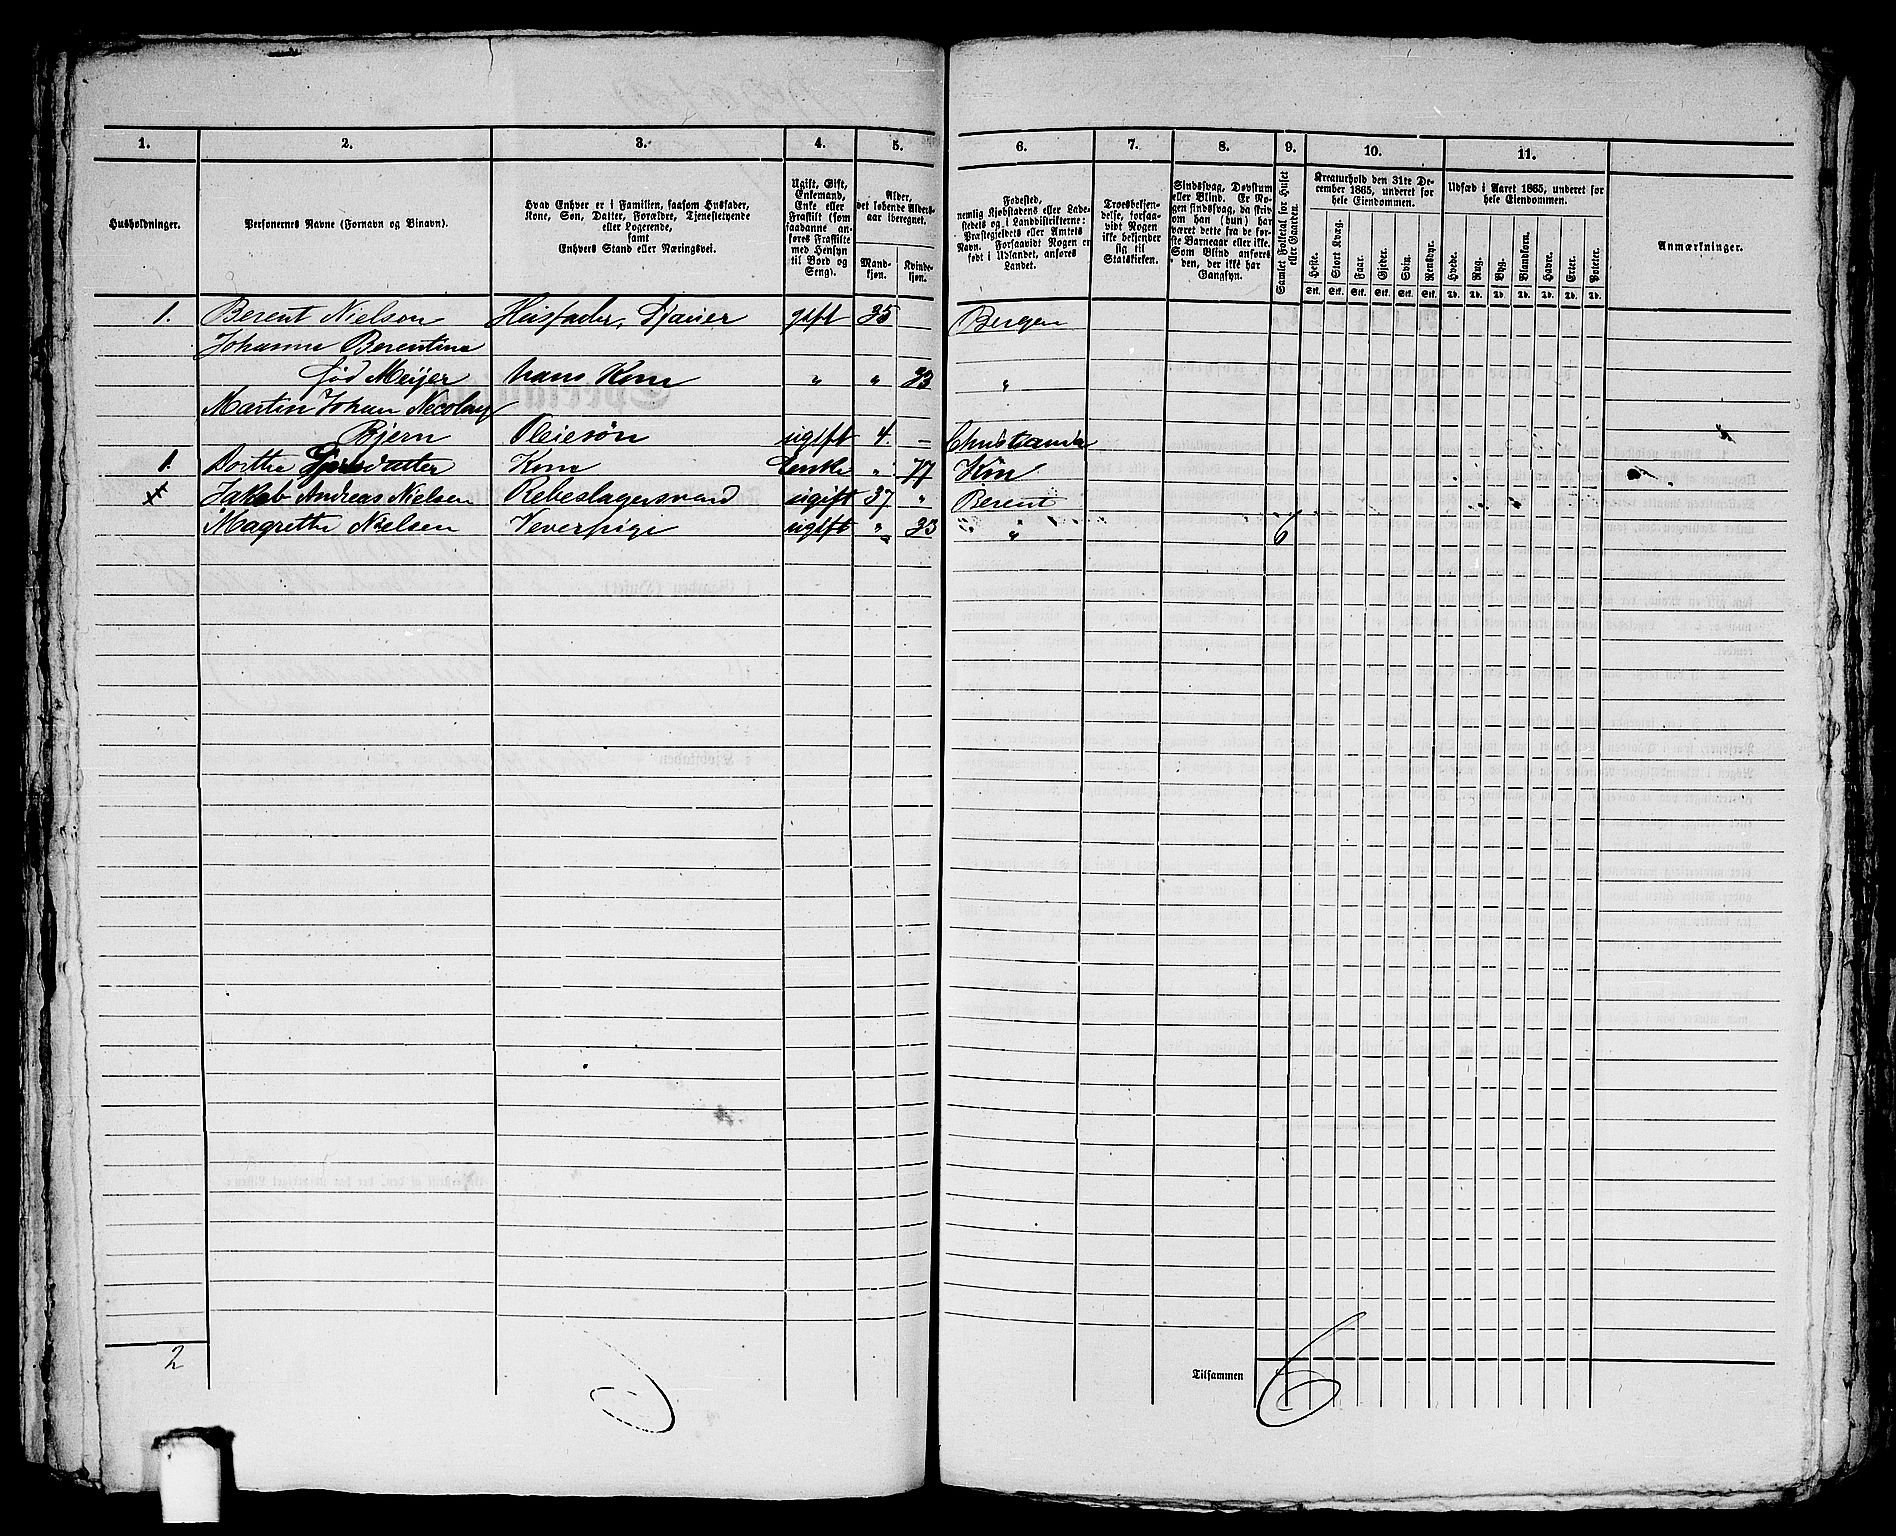 1. 2. 3. 4. 5. 6. 7. 8. 9. 10. 11.
Husholdninger.
Personernes Navne (Fornavn og Binavn).
Hvad Enhver er i Familien, saasom Husfader,
Kone, Søn, Datter, Forældre, Tjenestetyende
eller Logerende,
samt
Enhvers Stand eller Næringsvei.
Ugift, Gift,
Enkemand,
Enke eller
Fraskilt (som
saadanne an-
føres Fraskilte
med Hensyn
til Bord og
Seng).
Alder,
det løbende Alders-
aar iberegnet.
Mand-
kjøn.
Kvinde-
kjøn.
Fødested,
nemlig Kjøbstadens eller Lade-
stedets og i Landdistrikterne:
Præstegjeldets eller Amtets
Navn. Forsaavidt Nogen er
født i Udlandet, anføres
Landet.
Troesbekjen-
delse, forsaa-
vidt Nogen
ikke bekjender
sig til
Statskirken.
Sindssvag, Døvstum
eller Blind. Er No-
gen sindssvag, da skriv
om han (hun) har
været dette fra de før-
ste Barneaar eller ikke.
Som Blind anføres
den, der ikke har
Gangsyn.
Samlet Folketal for Huset
eller Gaarden.
Kreaturhold den 31te De-
cember 1865, underet for
hele Eiendommen.
Heste.
Stort Kvæg.
Faar.
Gjeder.
Svin.
Rensdyr.
Stk. Stk. Stk. Stk. Stk. Stk.
Udsæd i Aaret 1865, underet for
hele Eiendommen.
Hvede.
Rug.
Byg.
Blandkorn.
Havre.
Erter.
Poteter.
Td. Td. Td. Td. Td. Td. Td.
Anmærkninger.
1. Berent Nielson Husfader, gift 35 Bergen
Johanne Berentine
fød Meyer hans Kone " " 33 "
Martin Johan Necolay
Bjern Pleiesøn ugift 4. - Christiania
1. Dorthe Kone Enke " 77
Jakob Andreas Nielsen Rebeslagersvend ugift 37 " Berent
Magrethe Nielsen Veverpige ugift " 33 " " 6
2
Tilsammen 6